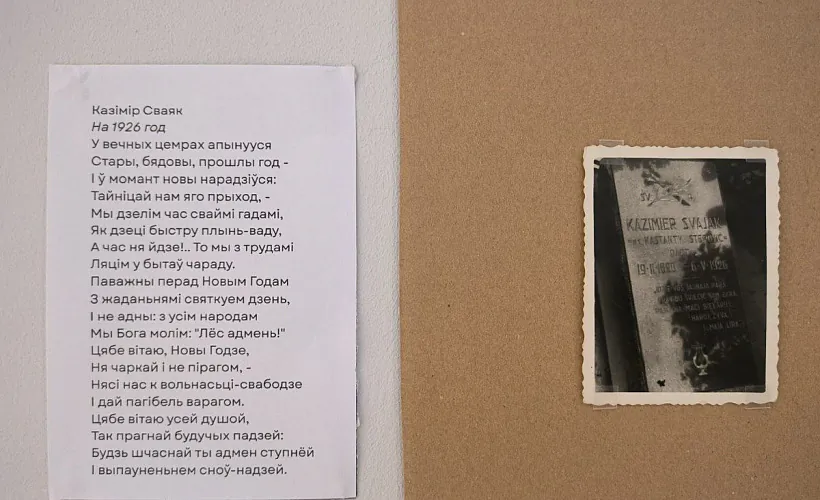 Казімір Сваяк
На 1926 год
У вечных цемрах апынууся
Стары, бядовы, прошлы год -
І ў момант новы нарадзіўся:
Тайніцай нам яго прыход, -
Мы дзелім час сваймі гадамі,
Як дзеці быстру плынь-ваду,
А час ня йдзе!.. То мы з трудамі
Ляцім у бытаў чараду.
Паважны перад Новым Годам
З жаданьнямі святкуем дзень,
І не адны: з усім народам
Мы Бога молім: "Лёс адмень!"
Цябе вітаю, Новы Годзе,
Ня чаркай і не пірагом, -
Нясі нас к вольнасьці-свабодзе
І дай пагібель варагом.
Цябе вітаю усей душой,
Так прагнай будучых падзей:
Будзь шчаснай ты адмен ступнёй
І выпауненьнем сноў-надзей.
KAZIMIER SVAJAK